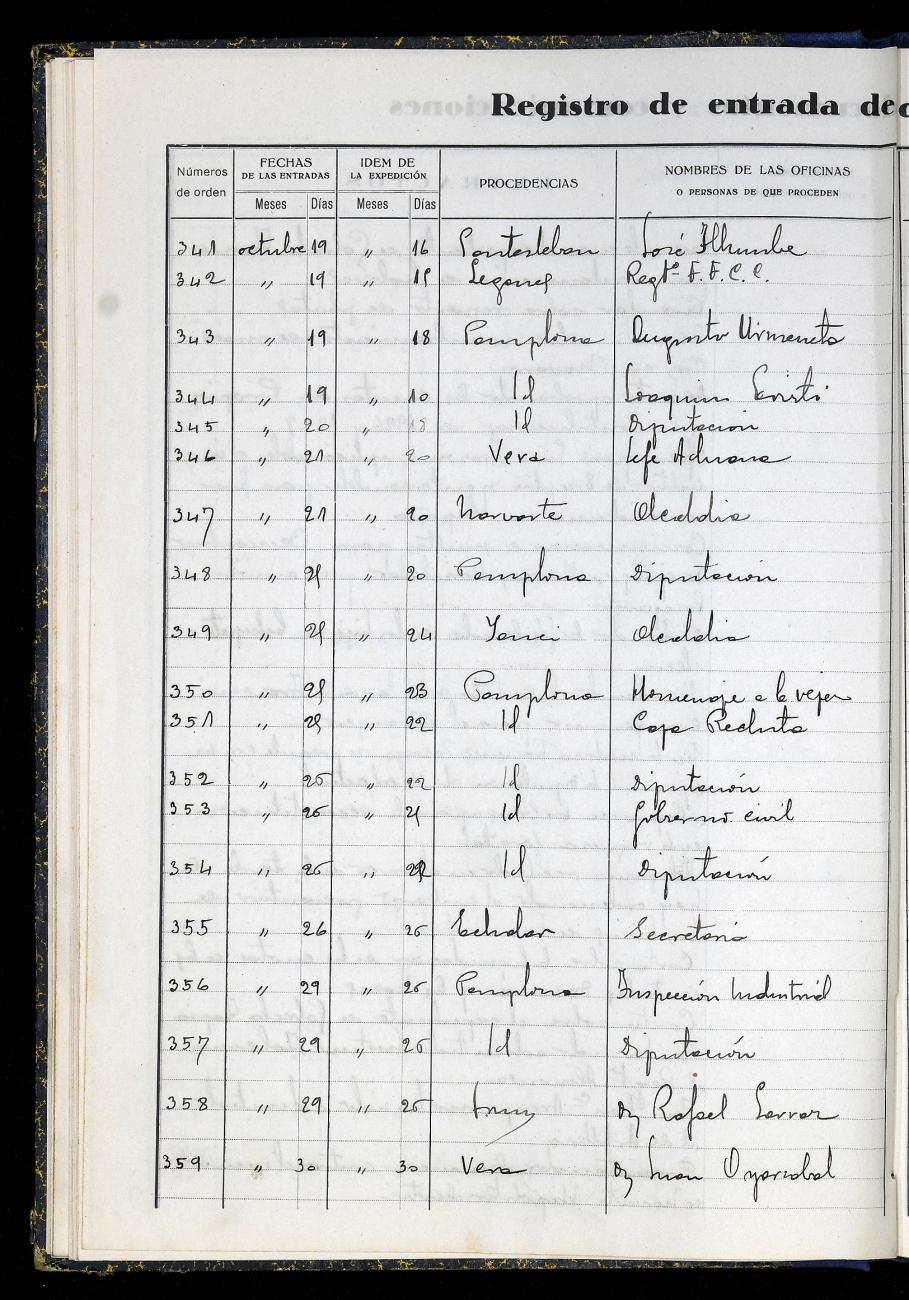 Registro de entrada de
Números de orden | FECHAS DE LAS ENTRADAS | IDEM DE LA EXPEDICIÓN | PROCEDENCIAS | NOMBRES DE LAS OFICINAS O PERSONAS DE QUE PROCEDEN
Meses | Días | Meses | Días
341 octubre 19 " 16 Santesteban José
342 " 19 " Regtº F.F.C.C.
343 " 19 " 18 Pamplona Augusto Urmeneta
344 " 19 " 10 Id Joaquin
345 " 20 " 18 Id Diputacion
346 " 21 " 20 Vera Jefe Aduana
347 " 21 " 20 Narvarte Alcaldia
348 " " 20 Pamplona Diputación
349 " " 24 Yanci Alcaldia
350 " " 23 Pamplona Homenaje a la vejez
351 " " 22 Id Caja Recluta
352 " 25 " 22 Id Diputación
353 " 26 " Id Gobierno civil
354 " 26 " Id Diputación
355 " 26 " 25 Echalar Secretario
356 " 29 " 26 Pamplona Inspección Industrial
357 " 29 " 26 Id Diputación
358 " 29 " 26 Irun Dn Rafael
359 " 30 " 30 Vera Dn Juan Oyarzabal